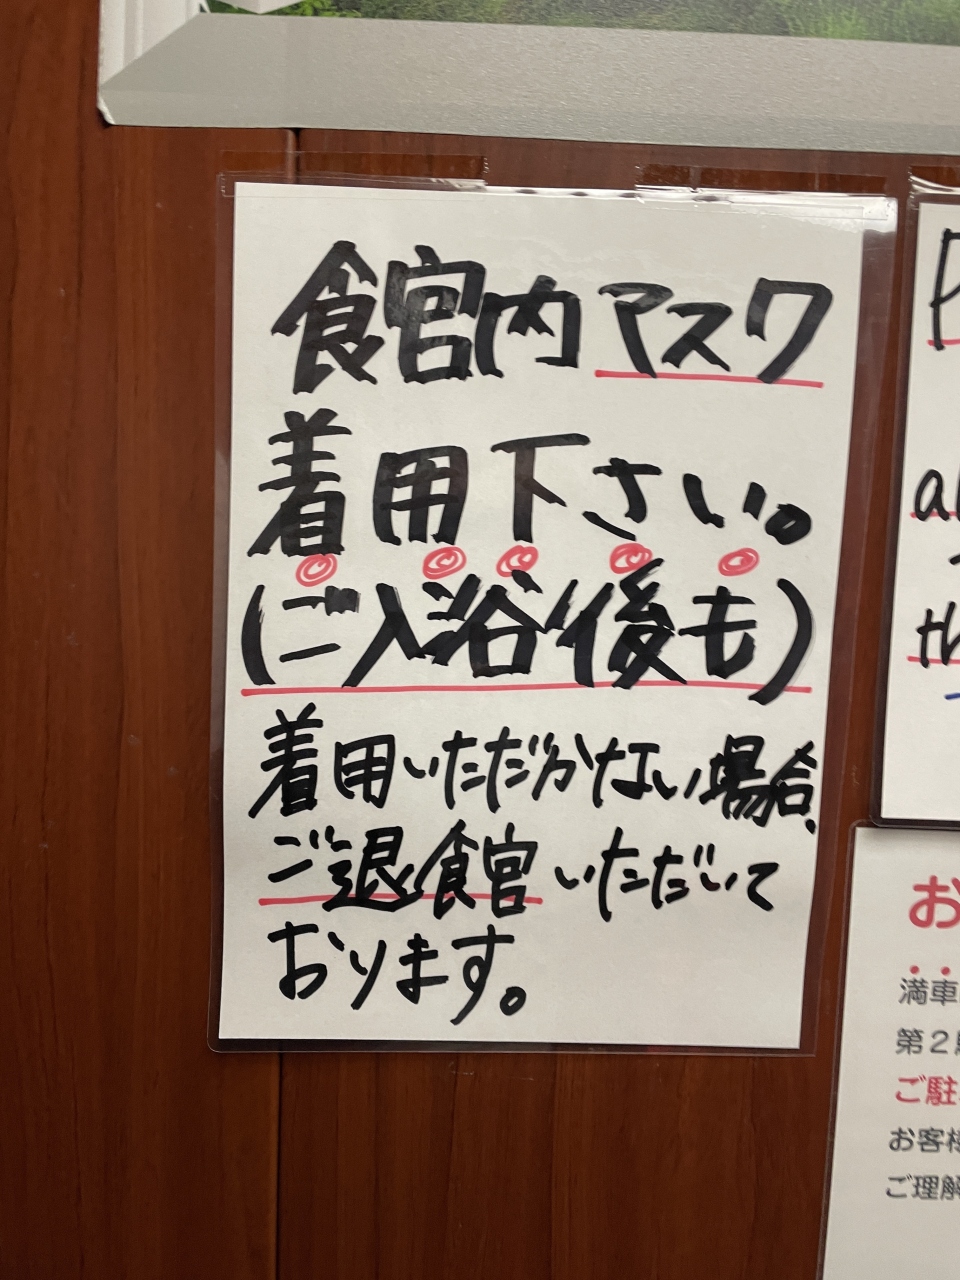 館内マスク
着用下さい。
(ご入浴後も)
着用いただかない場合、
ご退館いただいて
おります。
P
al
th
お
満車
第2
ご駐
お客様
ご理解